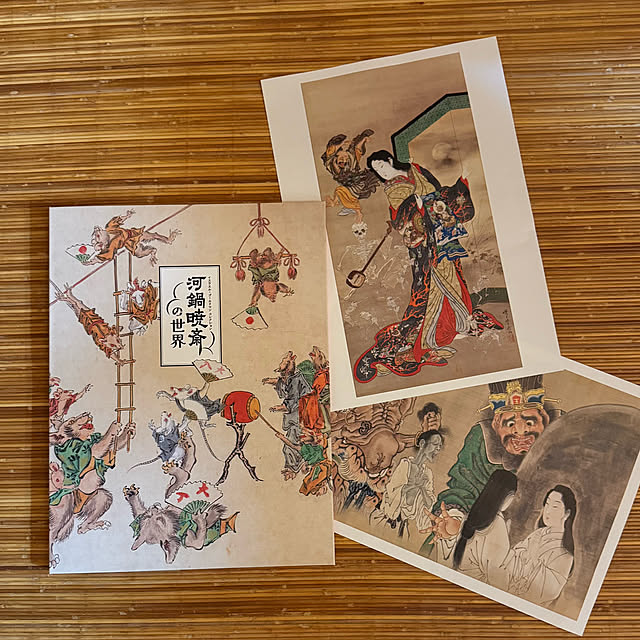 河鍋暁斎
の世界